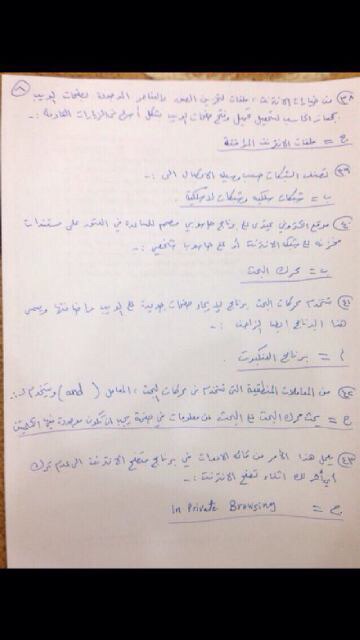 ٨
٣٨ من خيارات الانترنت، ملفات لتخزين الصور والعناصر الموجودة لصفحات الويب
بجهاز الحاسب لتحميل قبل وفتح صفحات الويب بشكل أسرع في الزيارات القادمة :-
ج = ملفات الانترنت المؤقتة
٣٩ تصنف الشبكات حسب وسيلة الاتصال الى :-
ب = شبكات سلكية وشبكات لاسلكية
٤٠ موقع الكتروني يحتوي على برنامج حاسوبي مصمم للمساعدة في العثور على مستندات
مخزنة على شبكة الانترنت أو على حاسوب شخصي :-
ب = محرك البحث
٤١ تستخدم محركات البحث برنامج لايجاد صفحات جديدة على الويب لإضافتها ويسمى
هذا البرنامج ايضا الزاحف :-
أ = برنامج العنكبوت
٤٢ من المعاملات المنطقية التي تستخدم في محركات البحث، المعامل (and) ويستخدم لـ :-
ج = يبحث محرك البحث على البحث عن معلومات في صفحة يجب أن تكون موجودة فيها الكلمتين
٤٣ يعمل هذا الأمر من قائمة الأدوات في برنامج متصفح الانترنت الى عدم ترك
أي أثر لك اثناء تصفح الانترنت :-
ج = In Private Browsing